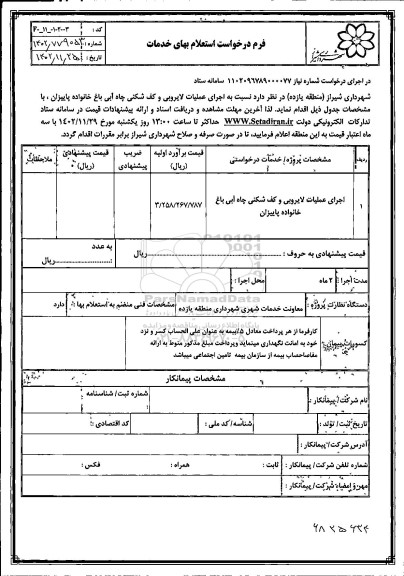 فرم درخواست استعلام بهای خدمات
کد :
شماره :
تاریخ :
۱۴۰۲/۱۱/۲۵
در اجرای درخواست شماره نیاز ۱۱۰۲۰۹۶۷۸۹۰۰۰۰۷۷ سامانه ستاد
شهرداری شیراز (منطقه یازده) در نظر دارد نسبت به اجرای عملیات لایروبی و کف شکنی چاه آبی باغ خانواده پاییزان ، با
مشخصات جدول ذیل اقدام نماید. لذا آخرین مهلت مشاهده و دریافت اسناد و ارائه پیشنهادات قیمت در سامانه ستاد
تدارکات الکترونیکی دولت WWW.Setadiran.ir حداکثر تا ساعت ۱۳:۰۰ روز یکشنبه مورخ ۱۴۰۲/۱۱/۲۹ با سه
ماه اعتبار قیمت به این منطقه اعلام فرمایید، تا در صورت صرفه و صلاح شهرداری شیراز برابر مقررات اقدام گردد.
ردیف
مشخصات پروژه/ خدمات درخواستی
قیمت برآورد اولیه (ریال)
ضریب پیشنهادی
قیمت پیشنهادی (ریال)
ملاحظات
۱
اجرای عملیات لایروبی و کف شکنی چاه آبی باغ
خانواده پاییزان
۳/۲۵۸/۲۶۷/۷۸۷
قیمت پیشنهادی به حروف : ........ ریال
به عدد
:........ریال
مدت اجرا : ۲ ماه
محل اجرا :
دستگاه نظارت پروژه : معاونت خدمات شهری شهرداری منطقه یازده
مشخصات فنی منضم به استعلام بها : دارد
کارفرما از هر پرداخت معادل ۵٪بیمه به عنوان علی الحساب کسر و نزد
خود به امانت نگهداری مینماید وپرداخت مبلغ مذکور منوط به ارائه
مفاصاحساب بیمه از سازمان بیمه تامین اجتماعی میباشد
مشخصات پیمانکار
نام شرکت/ پیمانکار :
شماره ثبت/ شناسنامه :
تاریخ ثبت/ تولد :
شناسه/ کد ملی :
کد اقتصادی :
آدرس شرکت/ پیمانکار :
شماره تلفن شرکت/ پیمانکار :
ثابت :
همراه :
فکس :
مهر و امضاء شرکت/ پیمانکار :